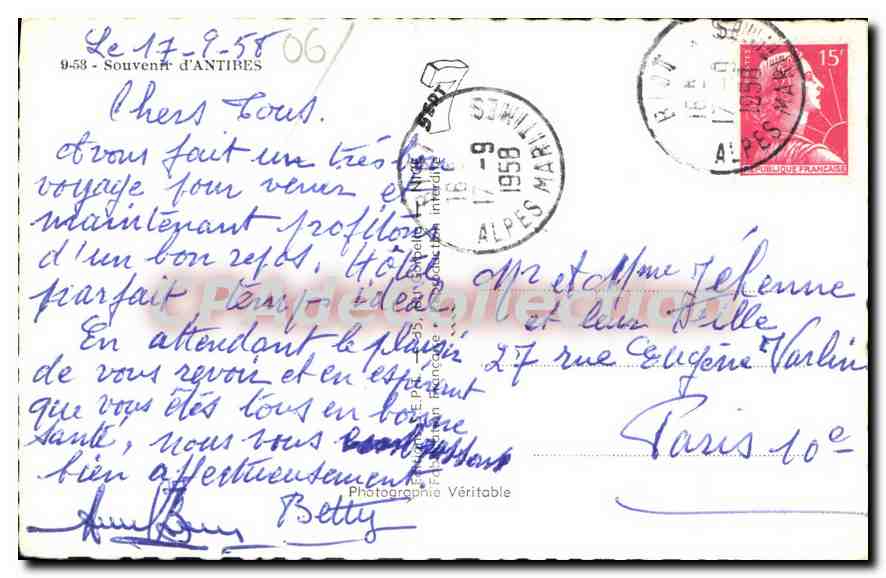 Le 17-9-58
06
9-58 - Souvenir d'ANTIBES
Chers Tous.
Avons fait un très bon
voyage pour venir et
maintenant profitons
d'un bon repos. Hôtel
parfait temps idéal.
En attendant le plaisir
de vous revoir et en espérant
que vous êtes tous en bonne
santé, nous vous embrassons
bien affectueusement.
Betty
SEPT
BIOT
17 -9
1958
ALPES MARITIMES
Photographie Véritable
Reproduction interdite
Fabrication Française
BIOT
17 -9
1958
ALPES MARITIMES
15F
REPUBLIQUE FRANÇAISE
Mr et Mme Jéhenne
et leur Fille
27 rue Eugène Varlin
Paris 10e
CPAdeCollection